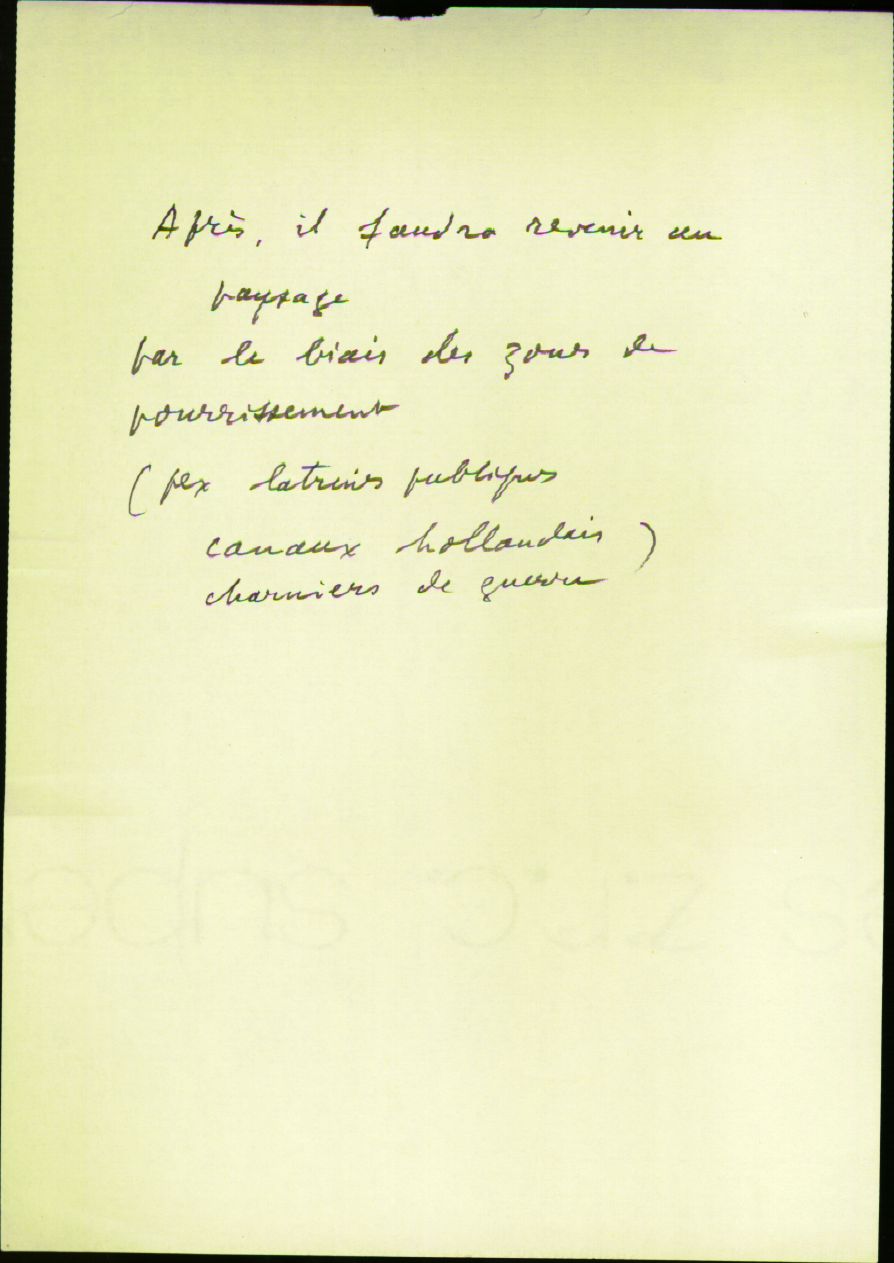 Après, il faudra revenir au
paysage
par le biais des zones de
pourrissement
(pex latrines publiques
canaux hollandais)
charniers de guerre